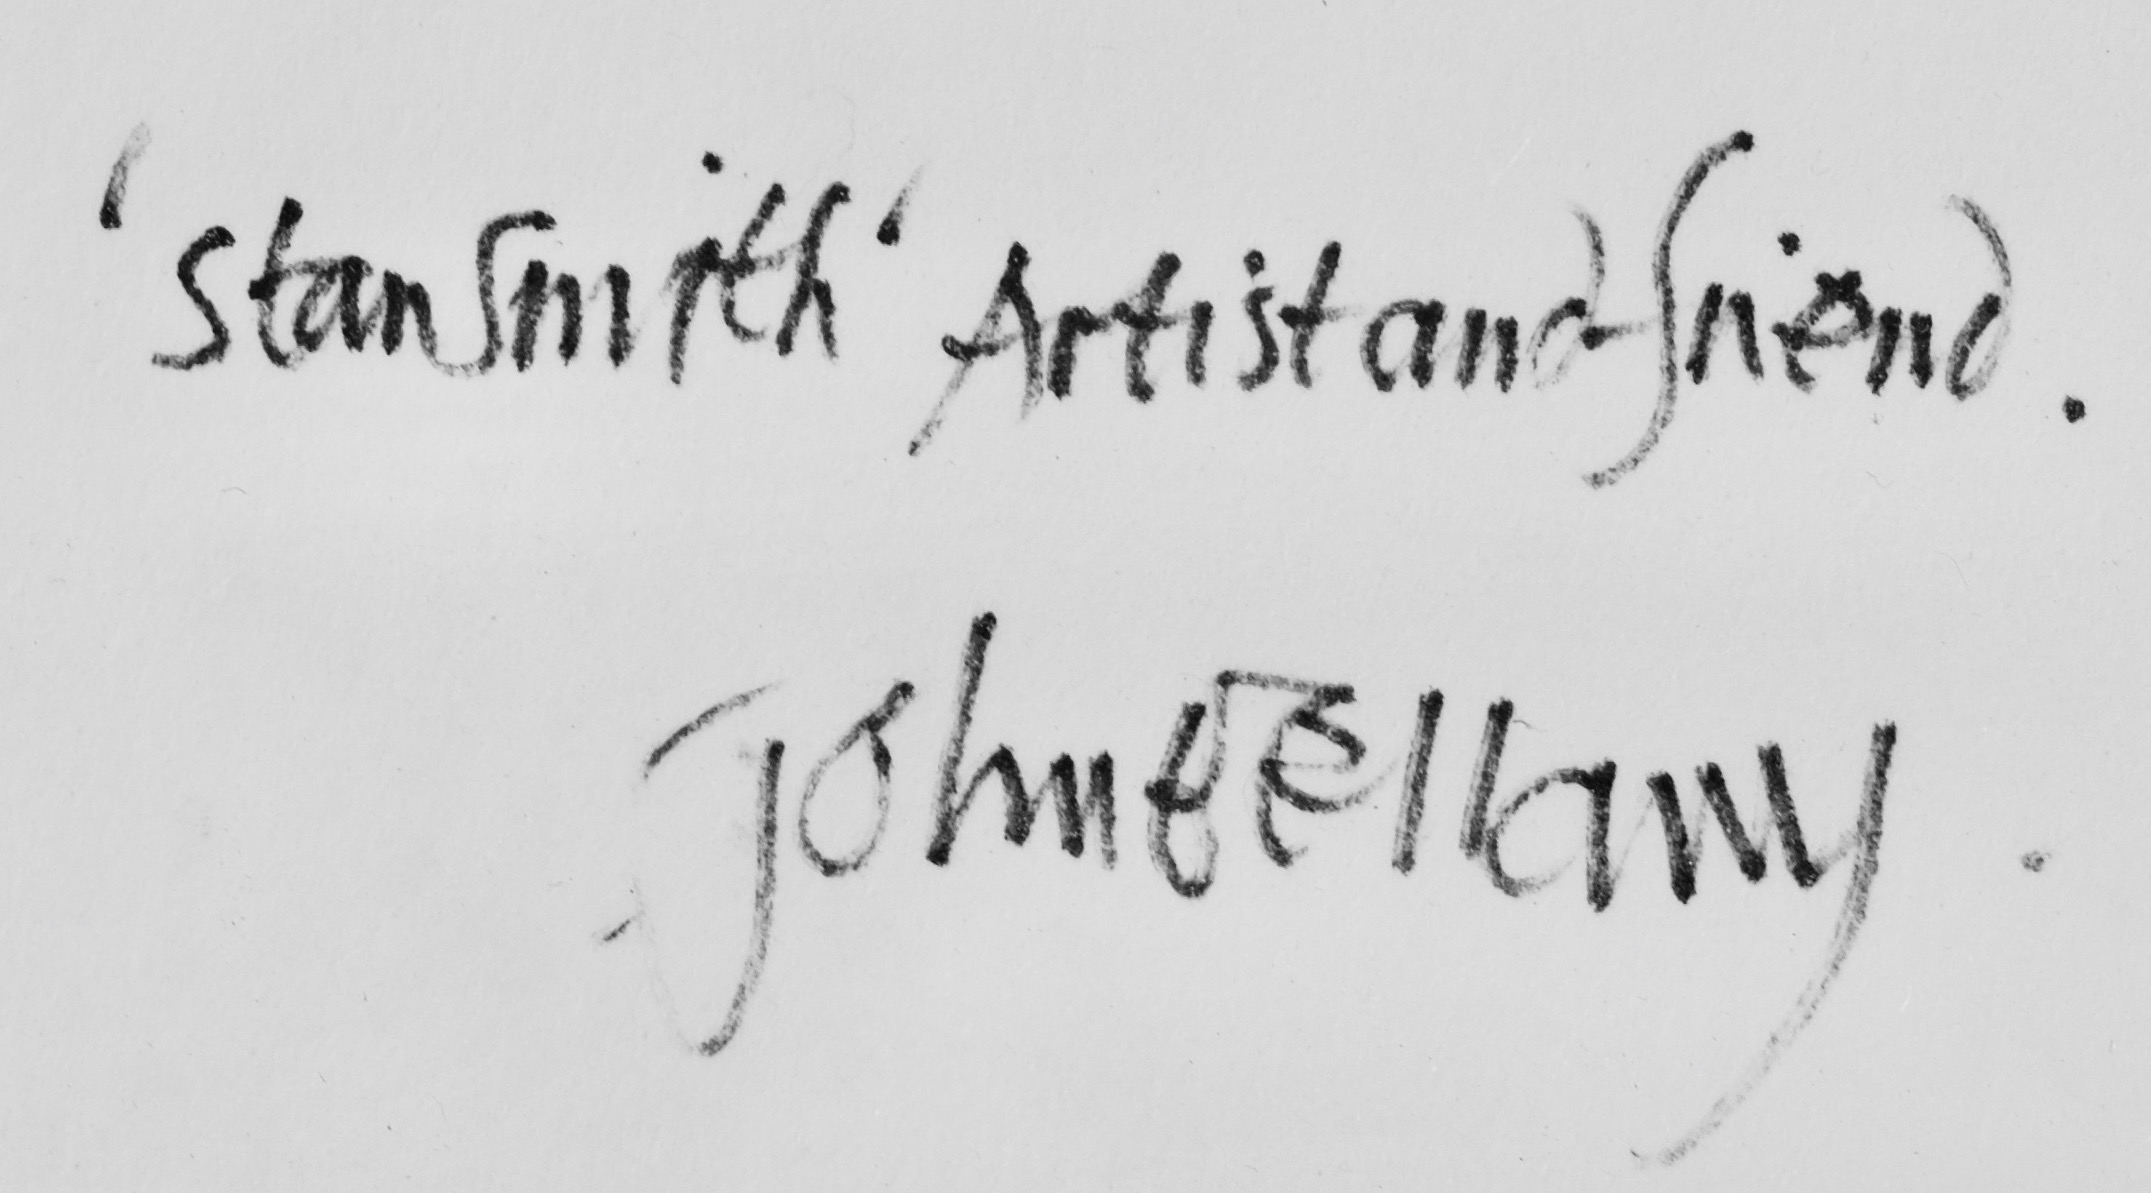 'Stan Smith' Artist and friend.
John Bellany.